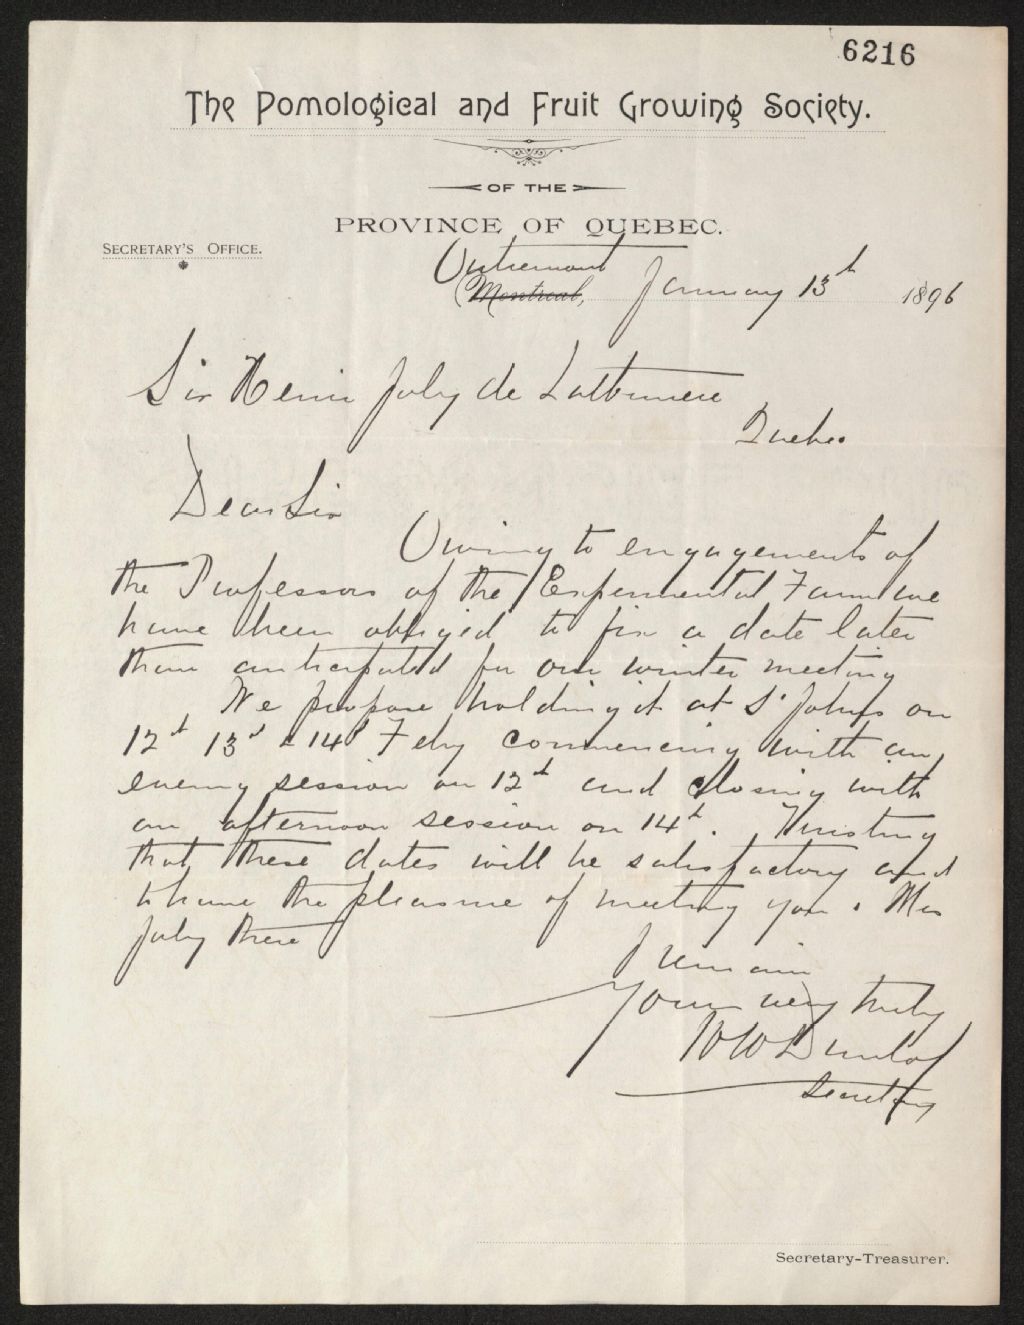 6216
The Pomological and Fruit Growing Society.
OF THE
PROVINCE OF QUEBEC.
SECRETARY'S OFFICE.
Outremont
Montreal, January 13th 1896
Sir Henri Joly de Lotbiniere
Quebec
Dear Sir
Owing to engagements of
the Professors of the Experimental Farm we
have been obliged to fix a date later
than anticipated for our winter meeting
We propose holding it at St Johns on
12th 13th & 14th Feby commencing with an
evening session on 12th and closing with
an afternoon session on 14th. Trusting
that these dates will be satisfactory and
to have the pleasure of meeting you & Mrs
Joly there
I remain
Yours very truly
W W Dunlop
Secretary
Secretary-Treasurer.